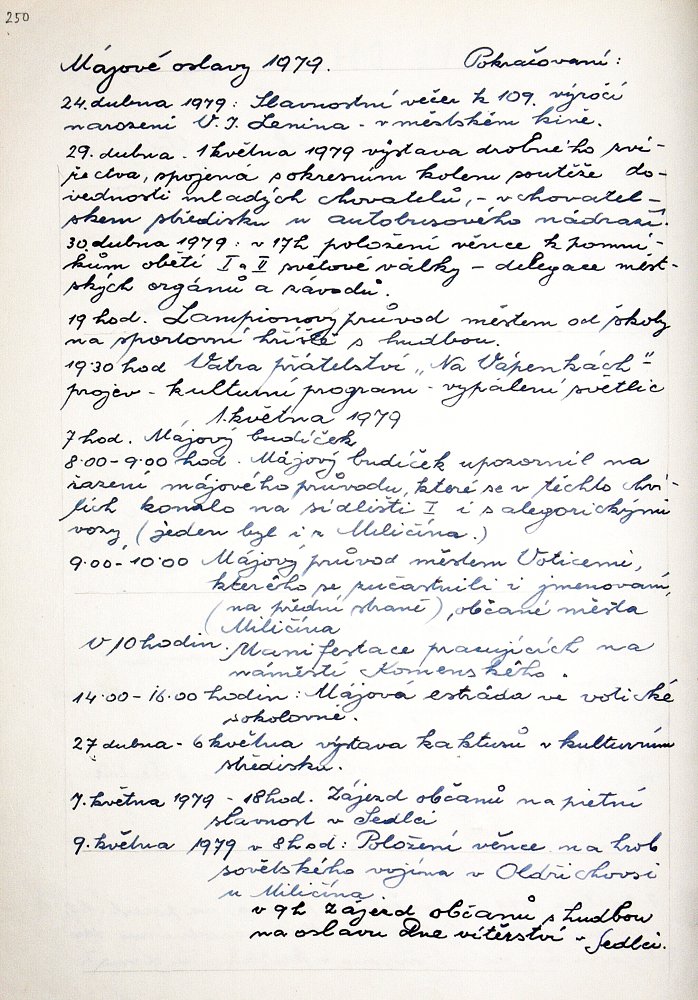 250
Májové oslavy 1979. Pokračování:
24. dubna 1979: Slavnostní večer k 109. výročí
narození V. I. Lenina - v městském kině.
29. dubna - 1 května 1979 výstava drobného zví-
řectva, spojená s okresním kolem soutěže do-
vednosti mladých chovatelů, - v chovatel-
ském středisku u autobusového nádraží.
30. dubna 1979: v 17h položení věnce k pomní-
kům obětí I a II světové války - delegace měst-
ských orgánů a závodů.
19 hod. Lampionový průvod městem od školy
na sportovní hřiště s hudbou.
19.30 hod Vatra přátelství "Na Vápenkách" -
projev - kulturní program - vypálení světlic
1. května 1979
7 hod. Májový budíček
8.00-9.00 hod. Májový budíček upozornil na
řazení májového průvodu, které se v těchto chví-
lích konalo na sídlišti I i s alegorickými
vozy (jeden byl i z Miličína.)
9.00-10.00 Májový průvod městem Voticemi,
kterého se zúčastnili i jmenovaní,
(na přední straně), občané města
Miličína
V 10 hodin. Manifestace pracujících na
náměstí Komenského.
14.00-16.00 hodin: Májová estráda ve votické
sokolovně.
27 dubna - 6 května výstava kaktusů v kulturním
středisku.
7. května 1979 - 18hod. Zájezd občanů na pietní
slavnost v Sedlci
9. května 1979 v 8hod: Položení věnce na hrob
sovětského vojína v Oldřichovsi
u Miličína.
v 9h Zájezd občanů s hudbou
na oslavu Dne vítěrství v Sedlci.